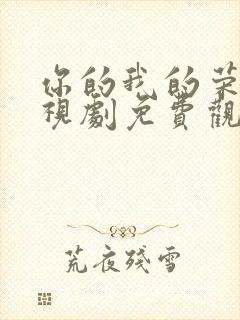 你的我的荣
視劇免費觀
荒夜殘雪